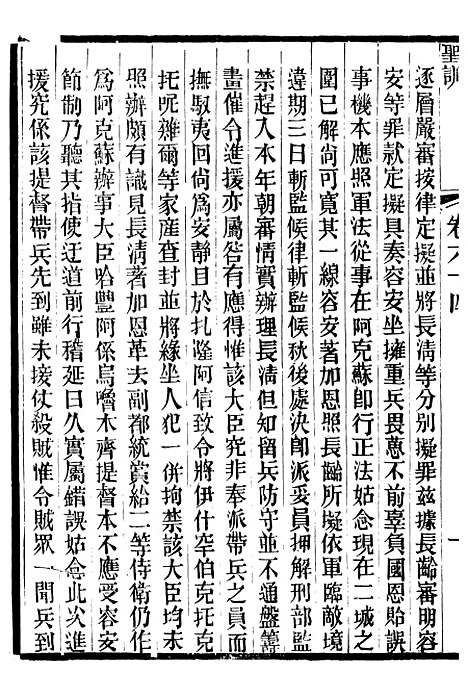 聖訓
卷六十四
一
逐層嚴審按律定擬並將長淸等分別擬罪兹據長齡審明容
安等罪款定擬具奏容安坐擁重兵畏葸不前辜負國恩貽誤
事機本應照軍法從事在阿克蘇卽行正法姑念現在二城之
圍已解尙可寬其一線容安著加恩照長齡所擬依軍臨敵境
違期三日斬監候律斬監候秋後處決卽派妥員解交刑部監
禁趕入本年朝審情實辦理長淸但知留兵防守並不通盤籌
畫催令進援亦屬咎有應得惟該大臣究非奉派帶兵之員而
撫馭夷回尙爲安靜且於札隆阿信致令將伊什罕伯克托克
托呢雜爾等家産查封並將緣坐人犯一併拘禁該大臣均未
照辦頗有識見長淸著加恩革去副都統賞給二等侍衛仍作
爲阿克蘇辦事大臣哈豐阿係烏嚕木齊提督本不應受容安
節制乃聽其指使迂道前行稽延日久實屬錯誤姑念此次進
援究係該提督帶兵先到雖未接仗殺賊惟令賊眾一聞兵到